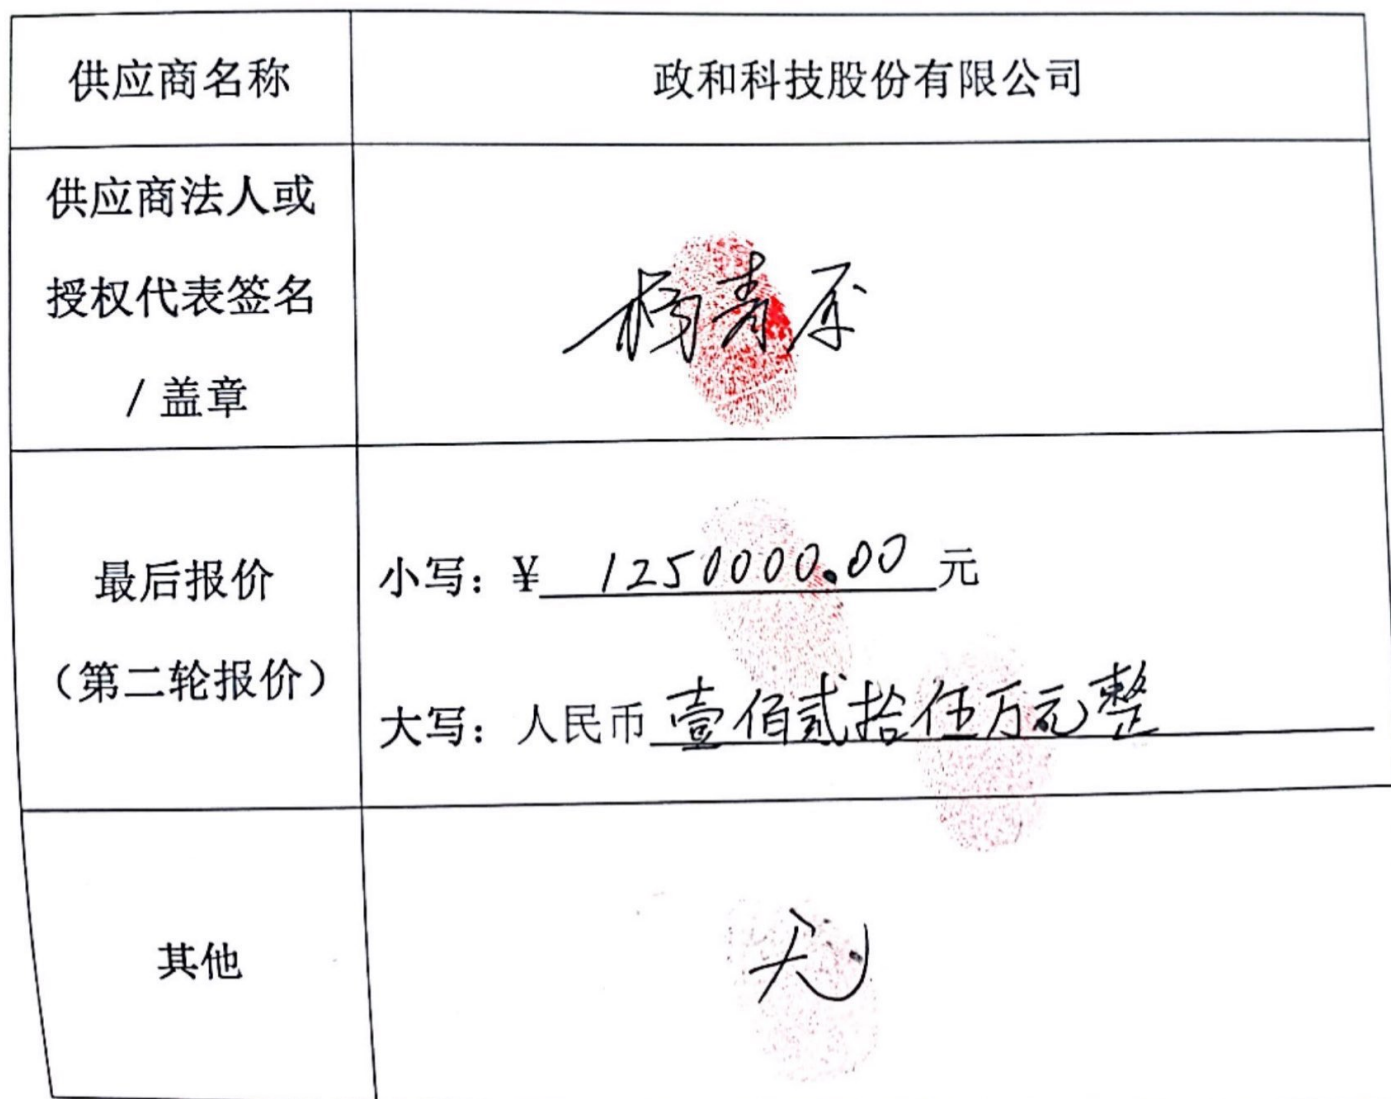 供应商名称
政和科技股份有限公司
供应商法人或
授权代表签名
/ 盖章
杨青
最后报价
（第二轮报价）
小写：¥ 1250000.00 元
大写：人民币 壹佰贰拾伍万元整
其他
无